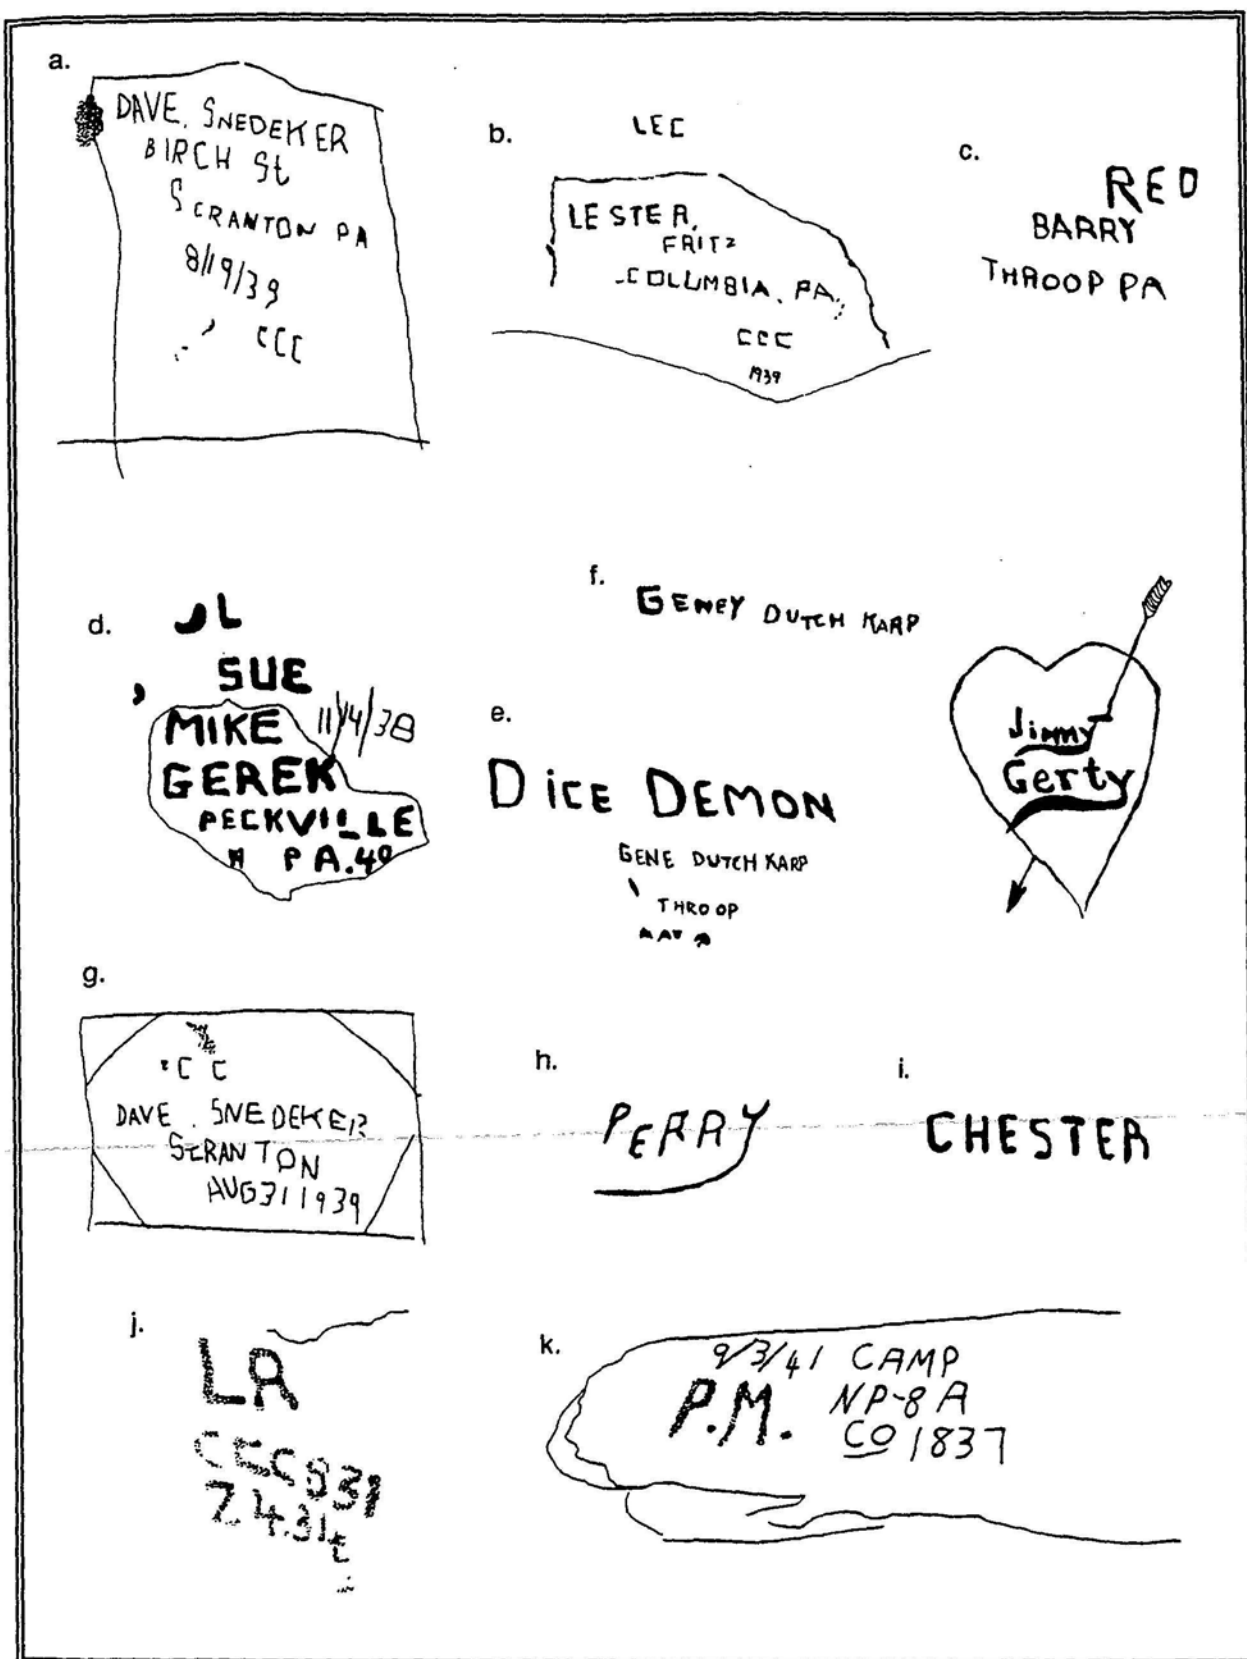 a.
DAVE. SNEDEKER
BIRCH St
SCRANTON PA
8/19/39
CCC
b.
LEC
LESTER,
FRITZ
COLUMBIA, PA,
CCC
1939
c.
RED
BARRY
THROOP PA
d.
JL
SUE
MIKE 11/14/38
GEREK
PECKVILLE
PA.40
e.
DiCE DEMON
GENE DUTCH KARP
THROOP
f.
GENEY DUTCH KARP
Jimmy
Gerty
g.
C C
DAVE. SNEDEKER
SCRANTON
AUG 31 1939
h.
PERRY
i.
CHESTER
j.
LR
CCC 831
Z431
k.
9/3/41 CAMP
P.M. NP-8 A
CO 1837